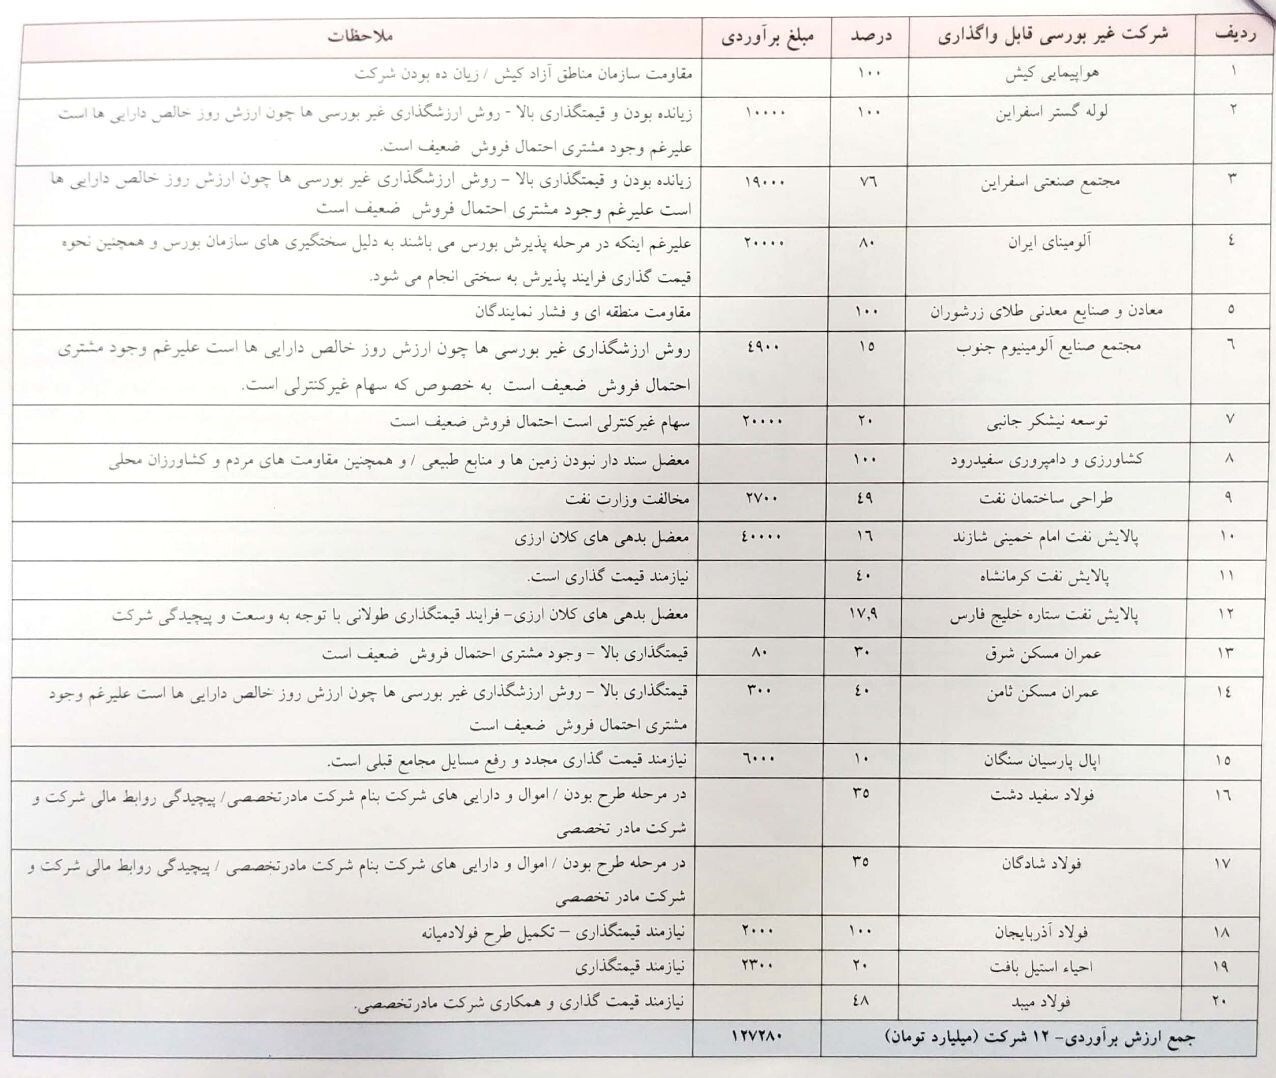 ردیف شرکت غیر بورسی قابل واگذاری درصد مبلغ برآوردی ملاحظات
۱ هواپیمایی کیش ۱۰۰ مقاومت سازمان مناطق آزاد کیش / زیان ده بودن شرکت
۲ لوله گستر اسفراین ۱۰۰ ۱۰۰۰۰ زیانده بودن و قیمتگذاری بالا - روش ارزشگذاری غیر بورسی ها چون ارزش روز خالص دارایی ها است
علیرغم وجود مشتری احتمال فروش ضعیف است.
۳ مجتمع صنعتی اسفراین ۷۶ ۱۹۰۰۰ زیانده بودن و قیمتگذاری بالا – روش ارزشگذاری غیر بورسی ها چون ارزش روز خالص دارایی ها
است علیرغم وجود مشتری احتمال فروش ضعیف است
٤ آلومینای ایران ۸۰ ۲۰۰۰۰ علیرغم اینکه در مرحله پذیرش بورس می باشند به دلیل سختگیری های سازمان بورس و همچنین نحوه
قیمت گذاری فرایند پذیرش به سختی انجام می شود.
٥ معادن و صنایع معدنی طلای زرشوران ۱۰۰ مقاومت منطقه ای و فشار نمایندگان
٦ مجتمع صنایع آلومینیوم جنوب ۱٥ ٤۹۰۰ روش ارزشگذاری غیر بورسی ها چون ارزش روز خالص دارایی ها است علیرغم وجود مشتری
احتمال فروش ضعیف است به خصوص که سهام غیرکنترلی است.
۷ توسعه نیشکر جانبی ۲۰ ۲۰۰۰۰ سهام غیرکنترلی است احتمال فروش ضعیف است
۸ کشاورزی و دامپروری سفیدرود ۱۰۰ معضل سند دار نبودن زمین ها و منابع طبیعی / و همچنین مقاومت های مردم و کشاورزان محلی
۹ طراحی ساختمان نفت ٤۹ ۲۷۰۰ مخالفت وزارت نفت
۱۰ پالایش نفت امام خمینی شازند ۱٦ ٤۰۰۰۰ معضل بدهی های کلان ارزی
۱۱ پالایش نفت کرمانشاه ٤۰ نیازمند قیمت گذاری است.
۱۲ پالایش نفت ستاره خلیج فارس ۱۷,۹ معضل بدهی های کلان ارزی– فرایند قیمتگذاری طولانی با توجه به وسعت و پیچیدگی شرکت
۱۳ عمران مسکن شرق ۳۰ ۸۰ قیمتگذاری بالا – وجود مشتری احتمال فروش ضعیف است
۱٤ عمران مسکن ثامن ٤۰ ۳۰۰ قیمتگذاری بالا – روش ارزشگذاری غیر بورسی ها چون ارزش روز خالص دارایی ها است علیرغم وجود
مشتری احتمال فروش ضعیف است
۱٥ اپال پارسیان سنگان ۱۰ ٦۰۰۰ نیازمند قیمت گذاری مجدد و رفع مسایل مجامع قبلی است.
۱٦ فولاد سفید دشت ۳٥ در مرحله طرح بودن / اموال و دارایی های شرکت بنام شرکت مادرتخصصی/ پیچیدگی روابط مالی شرکت و
شرکت مادر تخصصی
۱۷ فولاد شادگان ۳٥ در مرحله طرح بودن / اموال و دارایی های شرکت بنام شرکت مادرتخصصی / پیچیدگی روابط مالی شرکت و
شرکت مادر تخصصی
۱۸ فولاد آذربایجان ۱۰۰ ۲۰۰۰ نیازمند قیمتگذاری – تکمیل طرح فولادمیانه
۱۹ احیاء استیل بافت ۲۰ ۲۳۰۰ نیازمند قیمتگذاری
۲۰ فولاد میبد ٤۸ نیازمند قیمت گذاری و همکاری شرکت مادرتخصصی.
جمع ارزش برآوردی- ۱۲ شرکت (میلیارد تومان) ۱۲۷۲۸۰